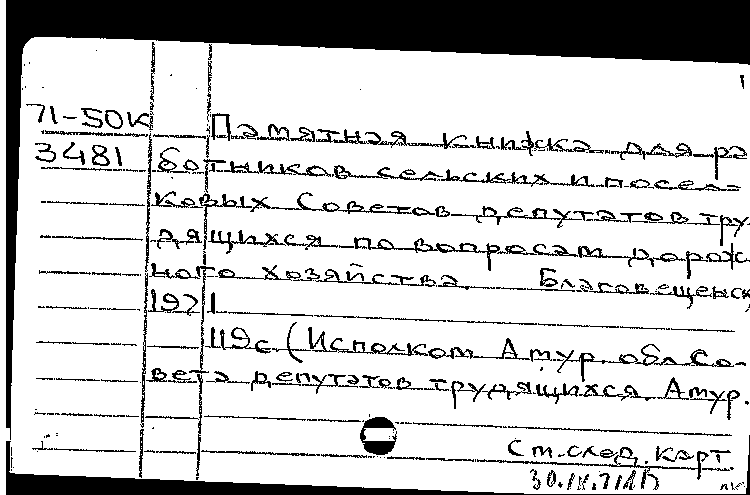 71-50к
3481
Памятная книжка для ра
ботников сельских и посел-
ковых Советов депутатов тру-
дящихся по вопросам дорож
ного хозяйства. Благовещенск,
1971
119с (Исполком Амур. обл Со-
вета депутатов трудящихся. Амур.
См. след. карт